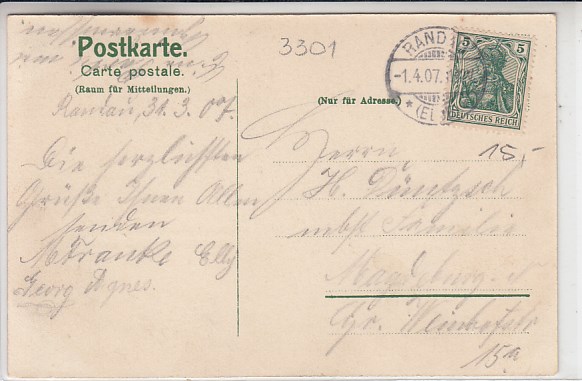 Postkarte.
Carte postale.
(Raum für Mitteilungen.)
3301
31. 3. 07.
Die herzlichsten
Grüße Ihnen Allen
senden
Elly
Georg Agnes.
(Nur für Adresse.)
RAND
-1.4.07.
* (EL
5 5
DEUTSCHES REICH
15,-
Herrn
H.
Familie
Magdeburg
Gr.
15a